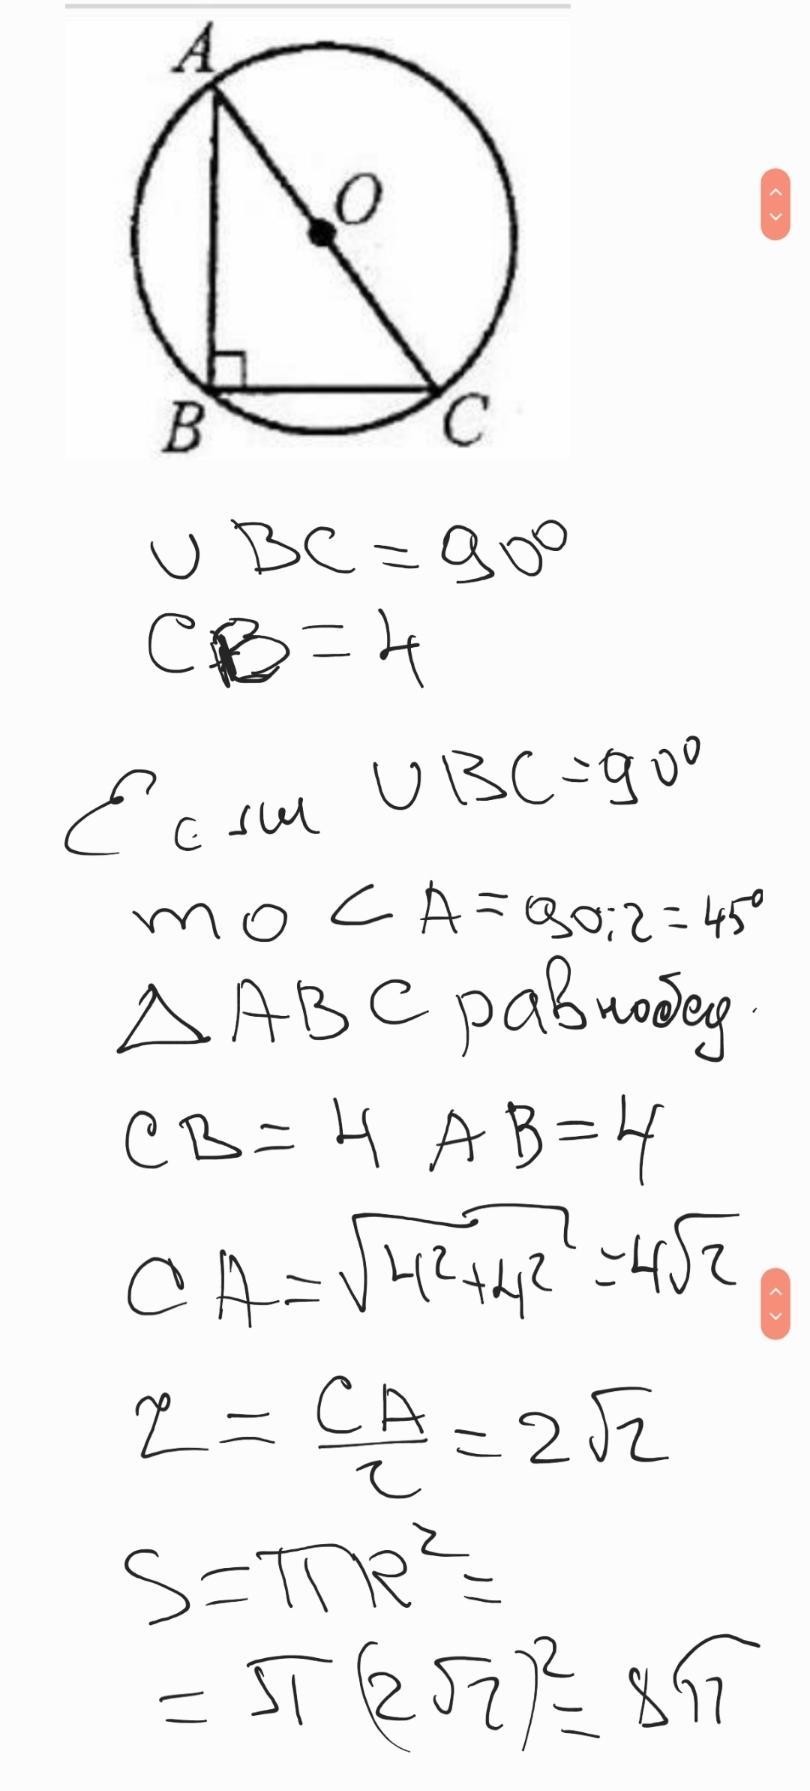 A
O
B
C
∪ BC = 90°
CB = 4
Если ∪ BC = 90°
то < A = 90:2 = 45°
△ ABC равнобед.
CB = 4 AB = 4
CA = √4²+4² = 4√2
r = CA/2 = 2√2
S = πR² =
= π(2√2)² = 8π